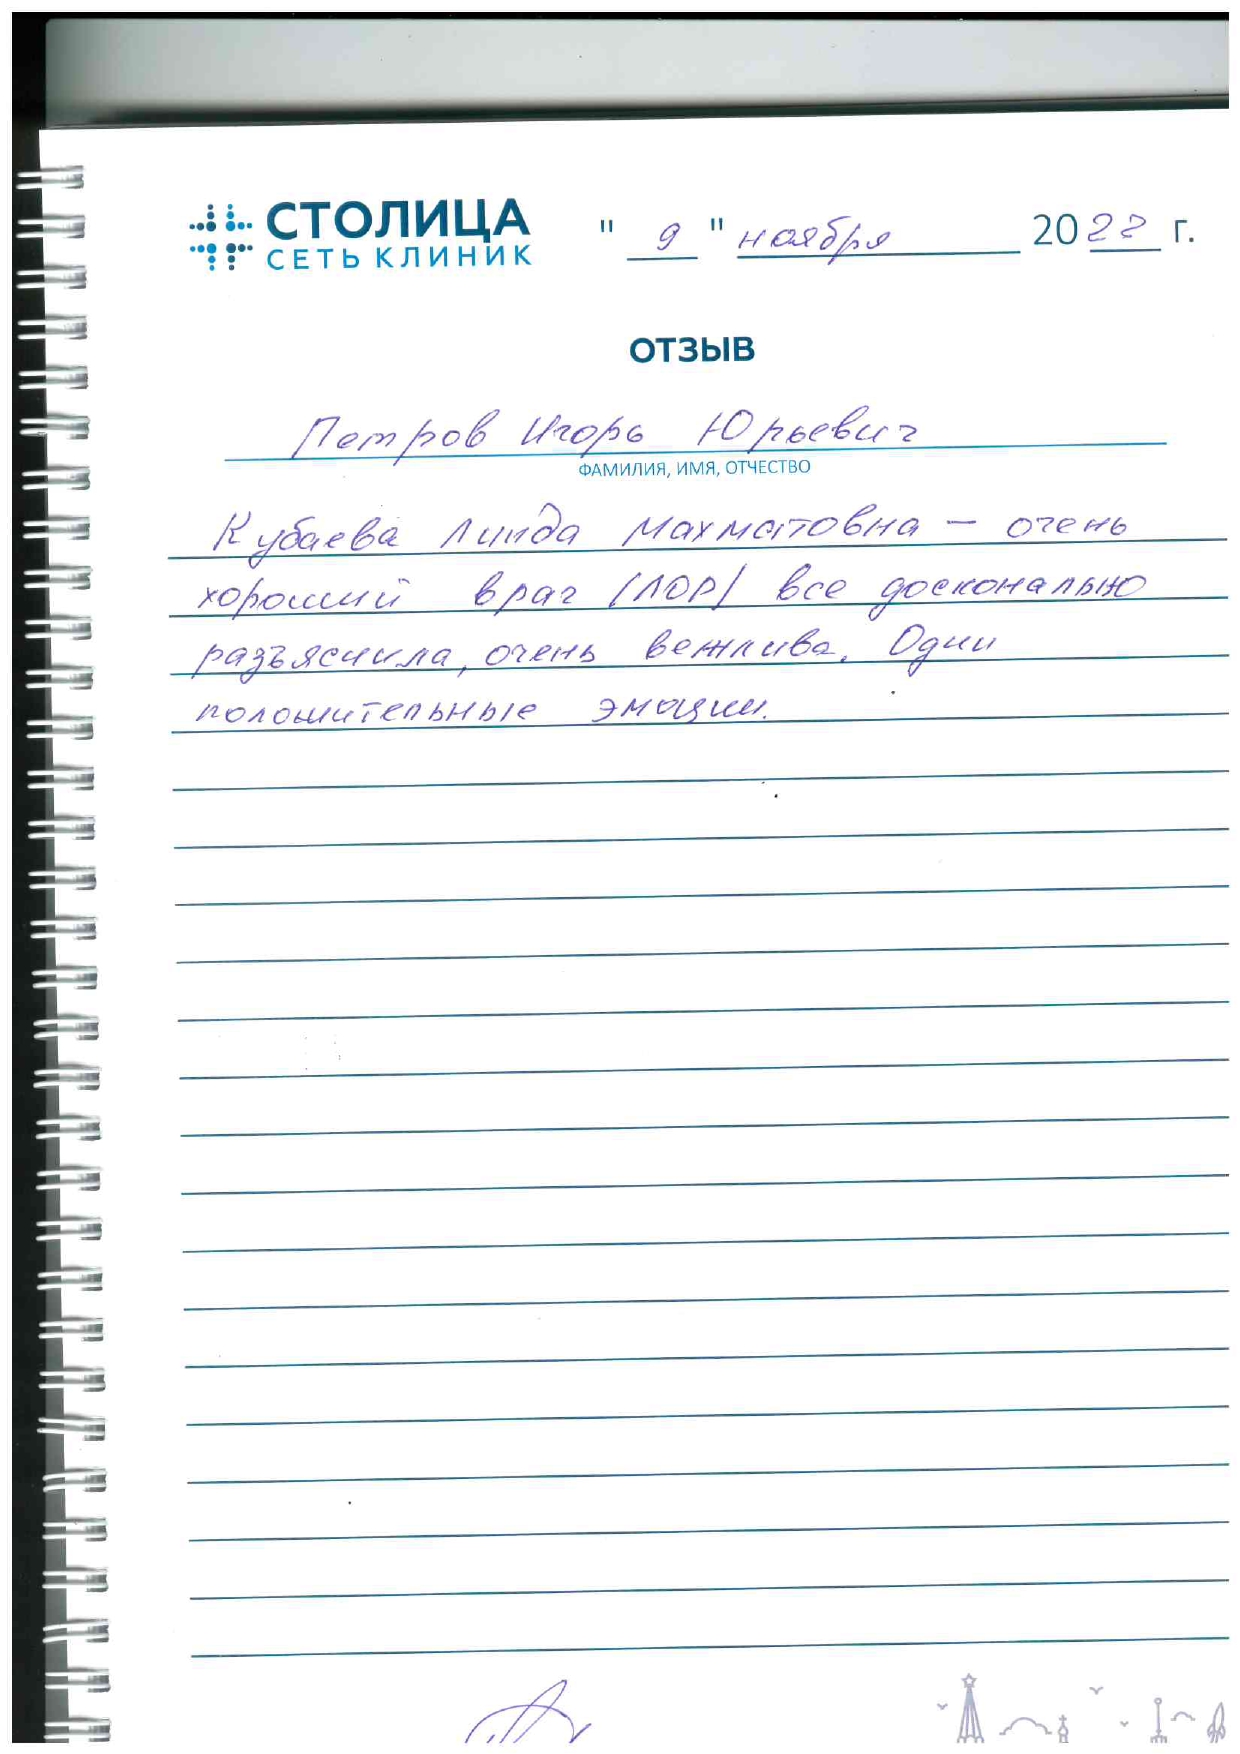 СТОЛИЦА
СЕТЬ КЛИНИК
" 9 " ноября 2022 г.
ОТЗЫВ
Петров Игорь Юрьевич
ФАМИЛИЯ, ИМЯ, ОТЧЕСТВО
Кубаева Линда Махматовна – очень
хороший врач (ЛОР) все досконально
разъяснила, очень вежлива. Одни
положительные эмоции.